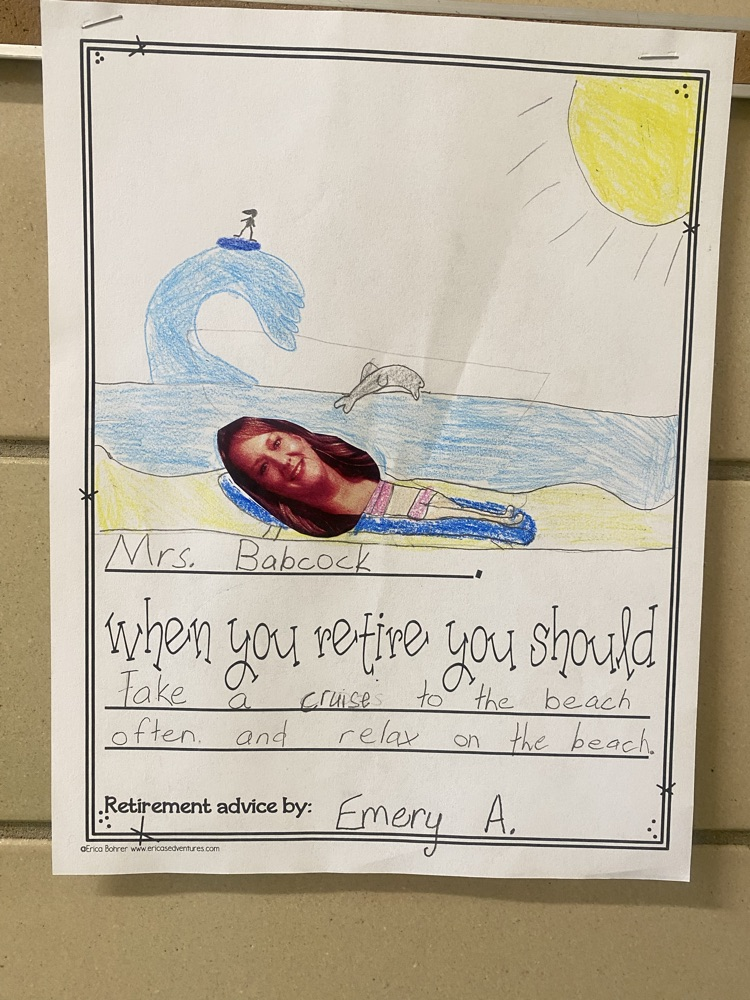 Mrs. Babcock.
when you retire you should
Take a cruise to the beach
often. and relax on the beach.
Retirement advice by: Emery A.
©Erica Bohrer www.ericasedventures.com